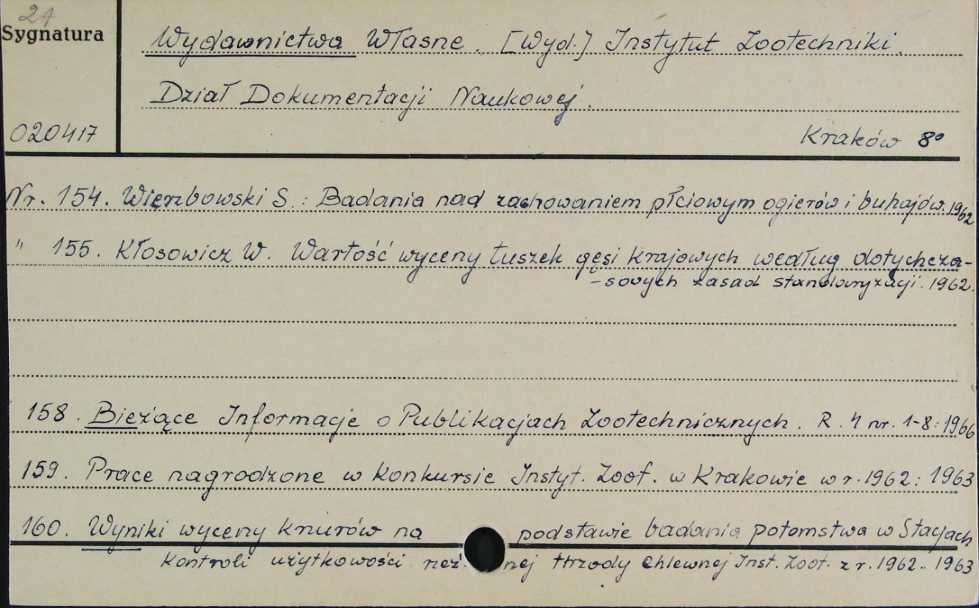 21
Sygnatura
Wydawnictwa Własne. [Wyd.] Instytut Zootechniki.
Dział Dokumentacji Naukowej.
020417
Kraków 8°
Nr. 154. Wierzbowski S.: Badania nad zachowaniem płciowym ogierów i buhajów. 1962
" 155. Kłosowicz W. Wartość wyceny tuszek gęsi krajowych według dotychcza-
-sowych zasad standaryzacji. 1962.
158. Bieżące Informacje o Publikacjach Zootechnicznych. R. 4 nr. 1-8: 1966
159. Prace nagrodzone w konkursie Instyt. Zoot. w Krakowie w r. 1962: 1963
160. Wyniki wyceny knurów na podstawie badania potomstwa w Stacjach
Kontroli użytkowości rzeź nej trzody chlewnej Inst. Zoot. z r. 1962. 1963